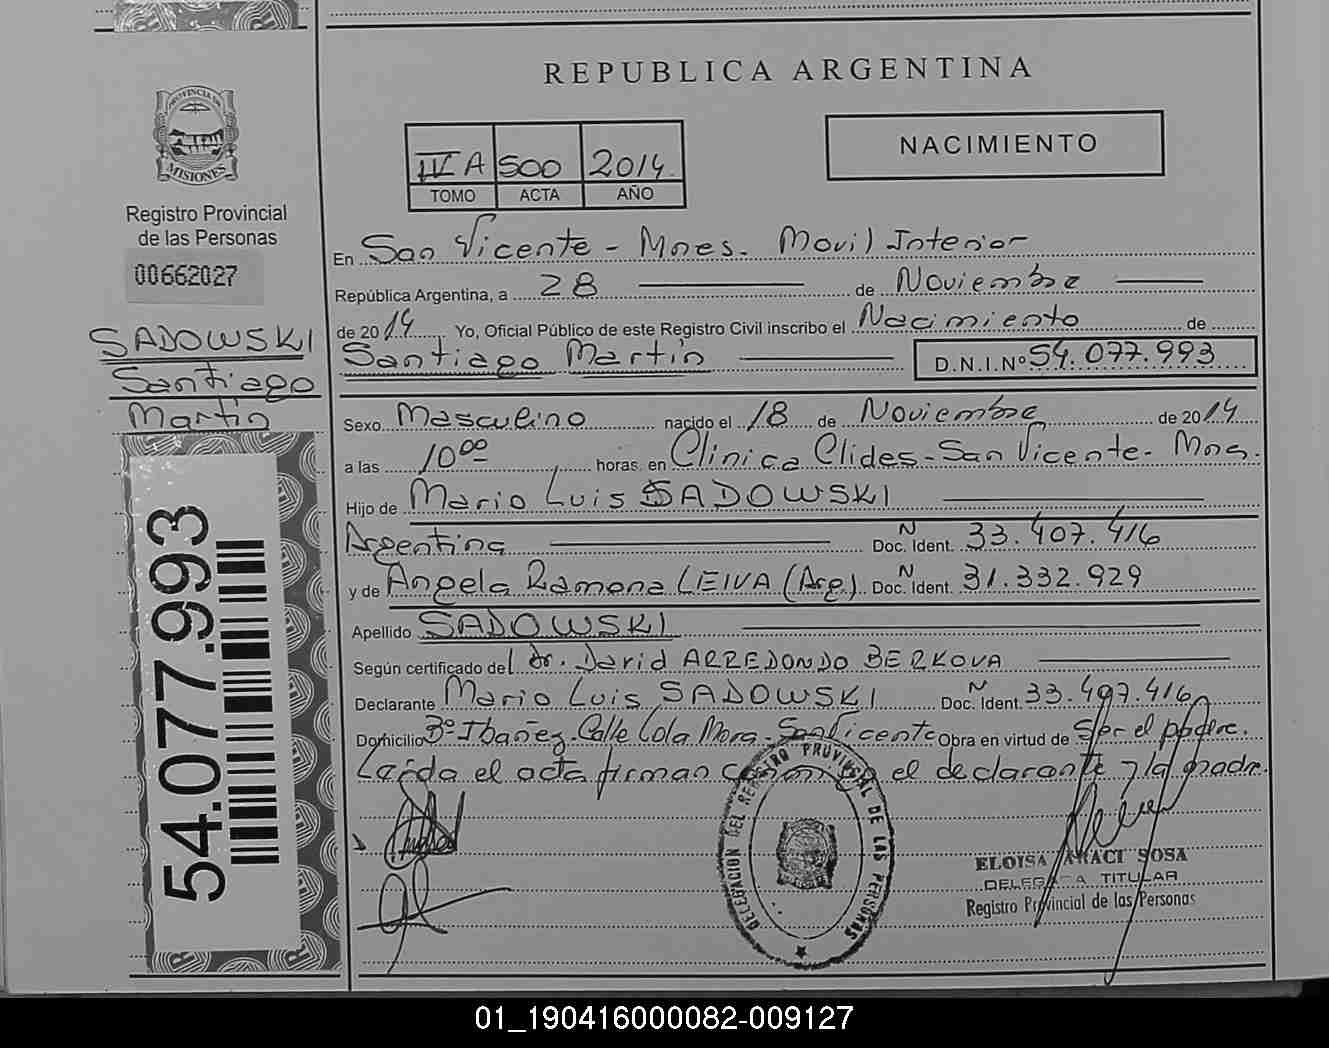 REPUBLICA ARGENTINA
NACIMIENTO
IV A 500 2014
TOMO ACTA AÑO
PROVINCIA DE
MISIONES
Registro Provincial
de las Personas
00662027
SADOWSKI
Santiago
Martín
54.077.993
En San Vicente - Mnes. Movil Interior
República Argentina, a 28 de Noviembre
de 2014 Yo, Oficial Público de este Registro Civil inscribo el Nacimiento de
Santiago Martín D.N.I.Nº 54.077.993
Sexo Masculino nacido el 18 de Noviembre de 2014
a las 10 00 horas, en Clinica Clides - San Vicente - Mnes.
Hijo de Mario Luis SADOWSKI
Argentina Doc. Ident. N 33.407.416
y de Angela Ramona LEIVA (Arg.) Doc. Ident. N 31.332.929
Apellido SADOWSKI
Según certificado del dr. David ARREDONDO BERKOVA
Declarante Mario Luis SADOWSKI Doc. Ident. N 33.407.416
Domicilio Bº Ibañez - Calle Lola Mora - San Vicente Obra en virtud de ser el padre.
Leída el acta firman conmigo el declarante y la madre.
DELEGACION DEL REGISTRO PROVINCIAL DE LAS PERSONAS
ELOISA ARACI SOSA
DELEGADA TITULAR
Registro Provincial de las Personas
01_190416000082-009127